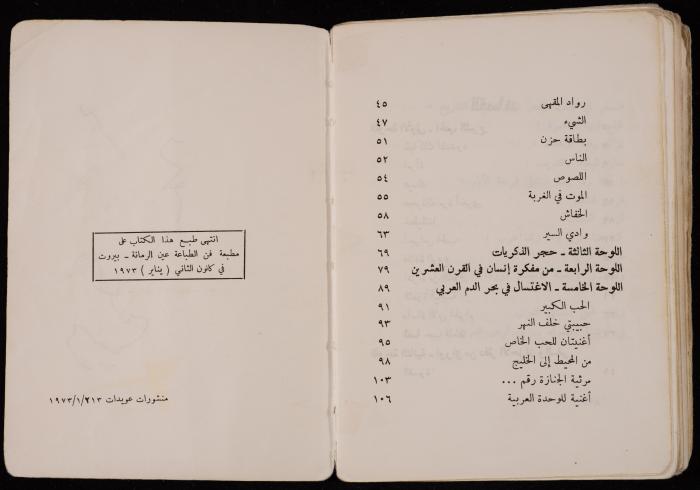 رواد المقهى ٤٥
الشيء ٤٧
بطاقة حزن ٥١
الناس ٥٢
اللصوص ٥٤
الموت في الغربة ٥٥
الخفاش ٥٨
وادي السير ٦٣
اللوحة الثالثة ـ حجر الذكريات ٦٩
اللوحة الرابعة ـ من مفكرة إنسان في القرن العشرين ٧٩
اللوحة الخامسة ـ الاغتسال في بحر الدم العربي ٨٩
الحب الكبير ٩١
حبيبتي خلف النهر ٩٣
أغنيتان للحب الخاص ٩٥
من المحيط إلى الخليج ٩٨
مرثية الجنازة رقم ... ١٠٣
أغنية للوحدة العربية ١٠٦
انتهى طبع هذا الكتاب على
مطبعة فن الطباعة عين الرمانة ـ بيروت
في كانون الثاني ( يناير ) ١٩٧٣
منشورات عويدات ١٩٧٣/١/٢١٣